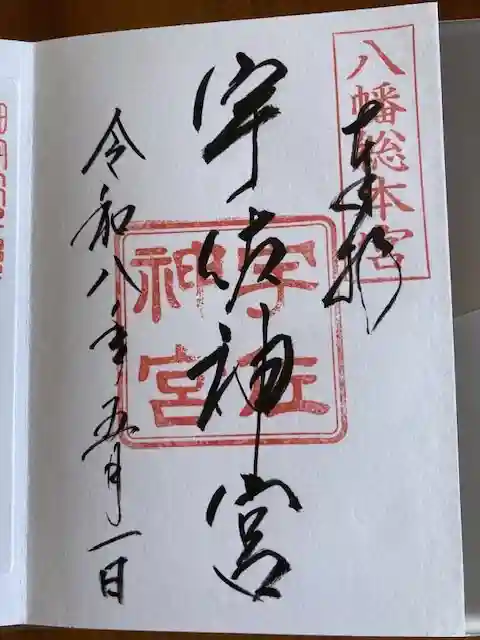 八幡総本宮
奉拝
宇佐神宮
宇佐神宮
令和八年五月一日